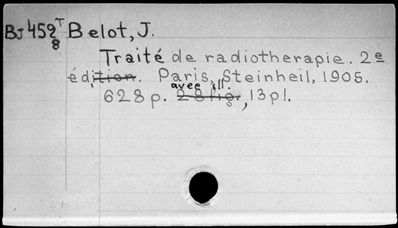 BJ 459 T Belot, J.
8
Traité de radiotherapie. 2e
édition. Paris, Steinheil, 1905.
avec ill.
628 p. 28 fig., 13 pl.